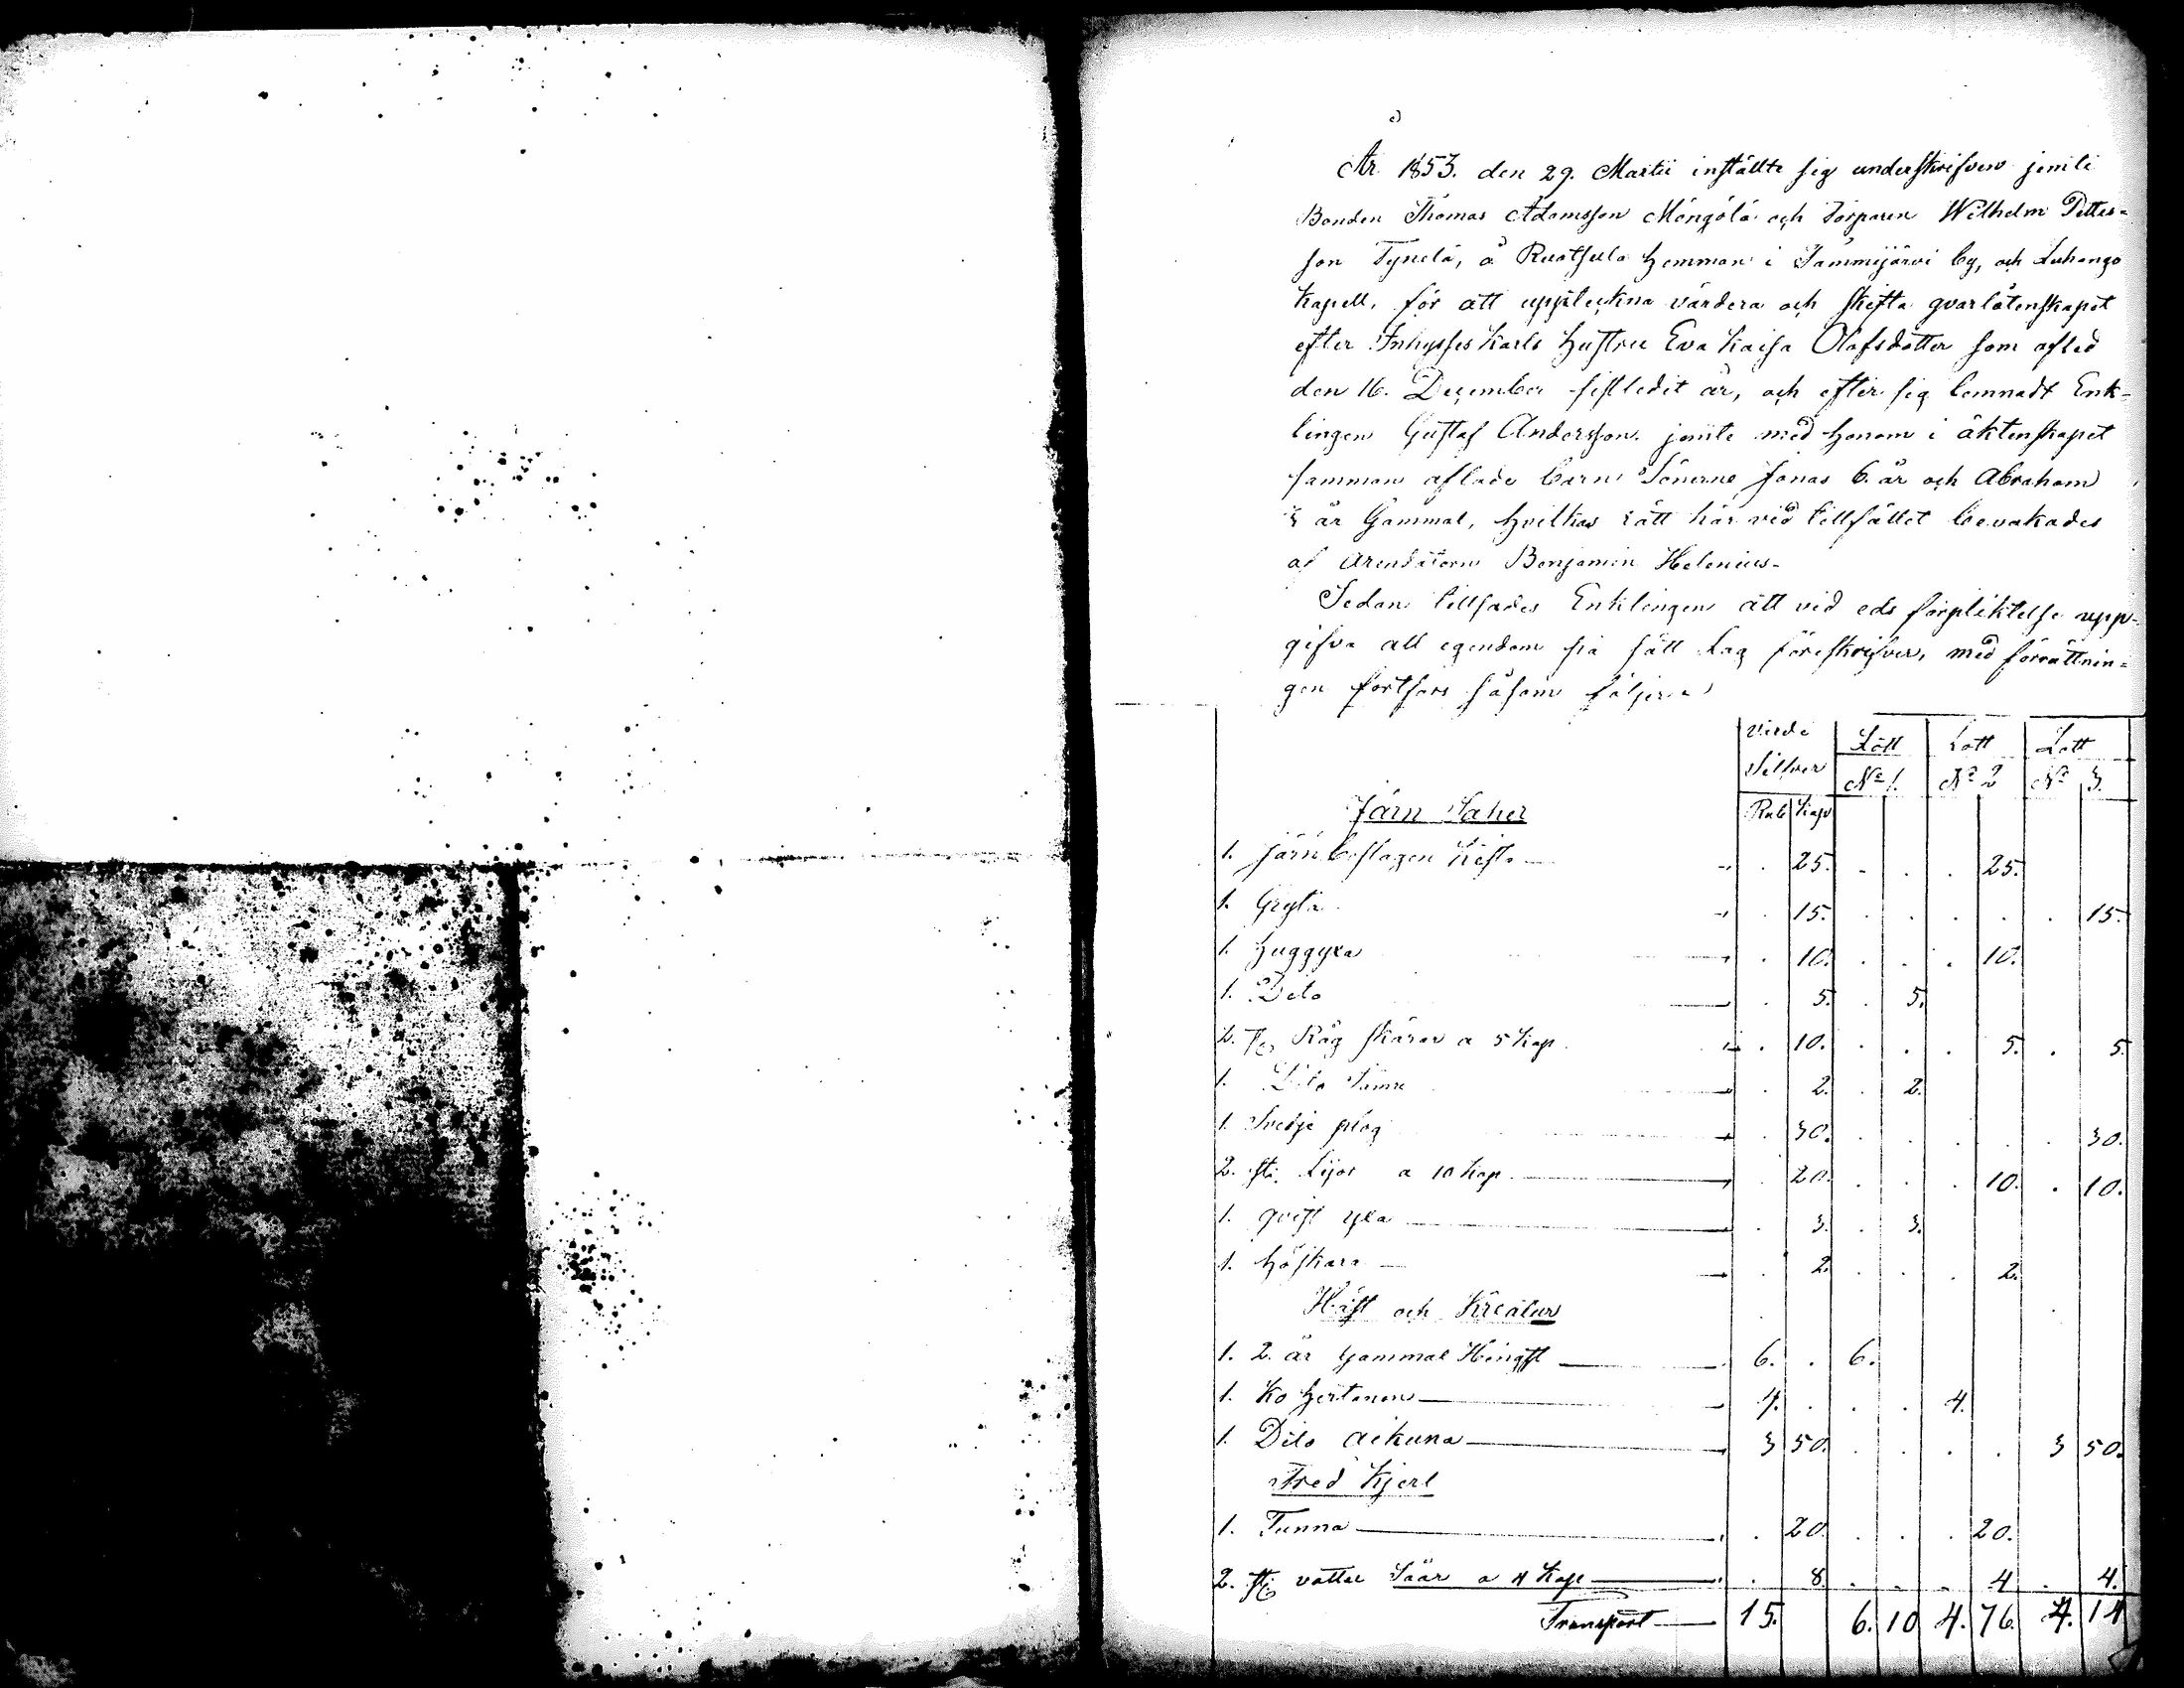 År 1853. den 29. Martii inställte sig underskrifven jemte
Bonden Thomas Adamsson Mängölä och Torparen Wilhelm Petters-
son Tynelä, å Ruotsula Hemman i Tammijärvi by, och Luhango
Kapell, för att upptekna värdera och skifta qvarlåtenskapet
efter Inhysses Karls Hustru Eva Kaisa Olafsdotter som afled
den 16. December sistledit år, och efter sig lemnadt Enk-
lingen Gustaf Andersson jemte med honom i äktenskapet
samman aflade barn Sönerne Jonas 6. år och Abraham
år Gammal, hvilkas rätt här vid tillfället bevakades
af Arendatorn Benjamin Helenius-
Sedan tillsades Enklingen att vid eds förpliktelse upp-
gifva all egendom på sätt Lag föreskrifver, med förrättnin-
gen fortfors såsom följer
Värde Lott Lott Lott
Silfver No 1. No 2 No 3.
Järn Saker Rub Kop
1. Järnbeslagen Kista 25. 25.
1. Gryta 15. 15.
1. Huggyxa 10. 10.
1. Dito 5. 5.
2. st Råg skäror a 5 Kop 10. 5. 5.
1. Dito Sämre 2. 2.
1. Svedje plog 30. 30.
2. st. Lijor a 10 Kop 20. 10. 10.
1. qvist yxa 3. 3.
1. Höskara 2. 2.
Häst och Kreatur
1. 2. år Gammal Hingst 6. 6.
1. Ko Hertanen 4. 4.
1. Dito Aikuna 3 50. 3 50.
Träd Kjerl
1. Tunna 20. 20.
2. st vatten Säar a 4 Kop 8. 4 4.
Transport 15. 6. 10 4. 76. 4. 14